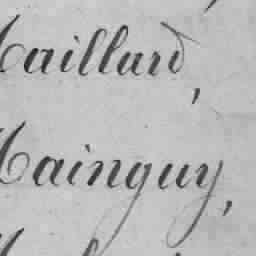 Maillard,
Mainguy,